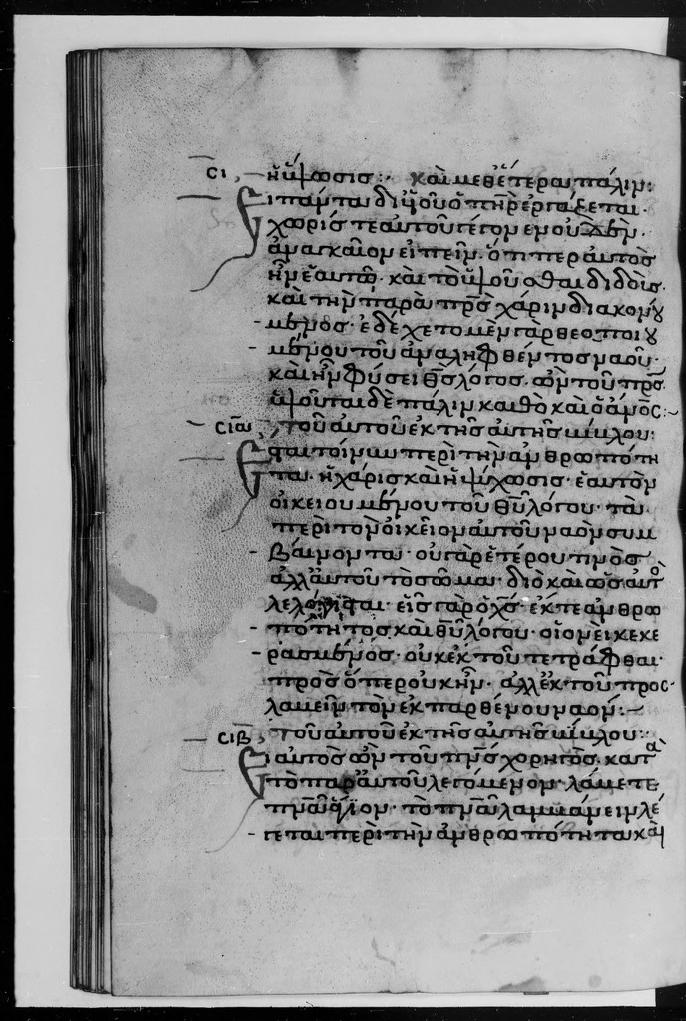 σι ἡ ὕψωσις: καὶ μεθ' ἕτερα πάλιν:
Εἰ πάντα δι' υἱοῦ ὁ πηρ ἐργάζεται
χωρίς τε αὐτοῦ γέγονεν οὐδέν.
ἀναγκαῖον εἰπεῖν. ὅτιπερ αὐτὸς
ἦν ἑαυτῷ. καὶ τὸ ὑψοῦσθαι διδοὺς.
καὶ τὴν παρὰ πρς χάριν διακονού
μενος. ἐδέχετο μὲν γὰρ θεοποιου
μένου τοῦ ἀναληφθέντος ναοῦ.
καὶ ἦν φύσει θς λόγος. ὢν τοῦ πρς.
ὑψοῦται δὲ πάλιν καθὸ καὶ ὁ ἀμνὸς:~
σια τοῦ αὐτοῦ ἐκ τῆς αὐτῆς βίβλου:
Ἔσται τοίνυν περὶ τὴν ἀνθρωπότη
τα. ἡ χάρις καὶ ἡ ὕψωσις. ἑαυτὸν
οἰκειουμένου τοῦ θυ λόγου. τὰ
περὶ τὸν οἰκεῖον αὐτοῦ ναὸν συμ
βαίνοντα. οὐ γὰρ ἑτέρου τινὸς
ἀλλ' αὐτοῦ τὸ σῶμα. διὸ καὶ ὡς αὐτὸς
λελόγισται. εἷς γὰρ ὁ χς. ἔκ τε ἀνθρω
πότητος καὶ θυ λόγου. οἱονεὶ κεκε
ρασμένος. οὐκ ἐκ τοῦ τετράφθαι
πρὸς ὅπερ οὐκ ἦν. ἀλλ' ἐκ τοῦ προσ
λαβεῖν τὸν ἐκ παρθένου ναόν:~
σιβ τοῦ αὐτοῦ ἐκ τῆς αὐτῆς βίβλου:
Εἰ αὐτὸς ὢν τοῦ πνς χορηγὸς. κατὰ
τὸ παρ' αὐτοῦ λεγόμενον. λάβετε
πνα ἅγιον. τὸ πνα λαμβάνειν λέ
γεται περὶ τὴν ἀνθρωπότητα καὶ